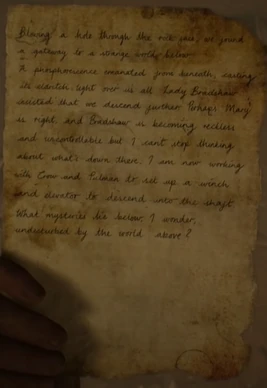 Blowing a hole through the rock one, we found
a gateway to a strange world below
A phosphorescence emanated from beneath, casting
its eldritch light over us all. Lady Bradshaw
insisted that we descend further. Perhaps Mary
is right, and Bradshaw is becoming reckless
and uncontrollable but I can't stop thinking
about what's down there. I am now working
with Crow and to set up a winch
and elevator to descend into the shaft
What mysteries lie below, I wonder,
undisturbed by the world above?